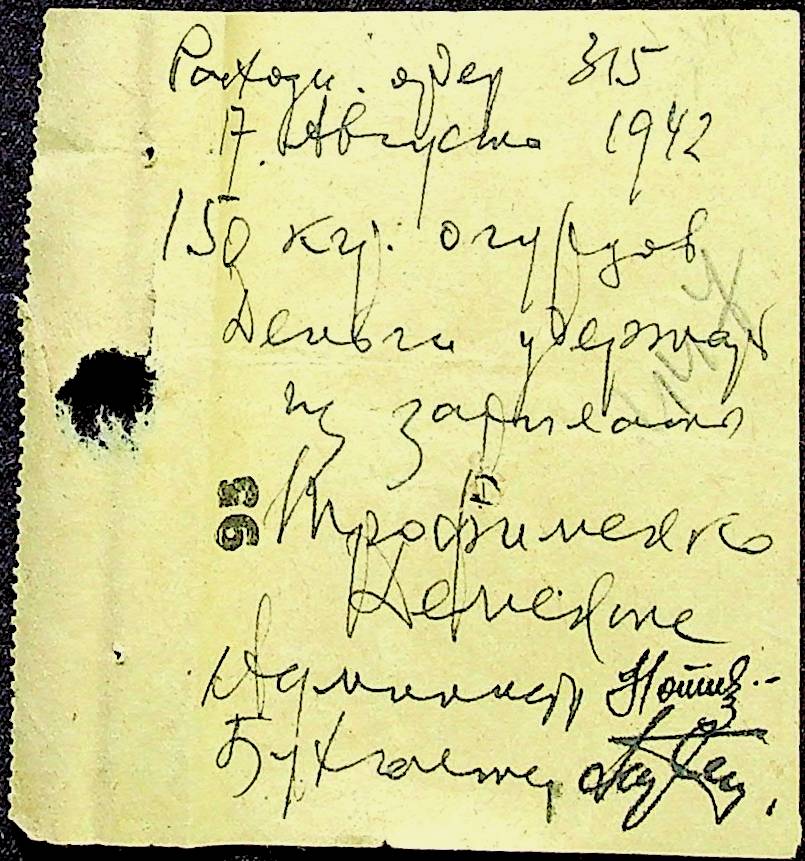 Расходн. ордер 315
17. Августа 1942
150 кгр. огурцов
Деньги удержать
из зарплаты
93
Трофименко
Демьяне
Администр
Бухгалтер